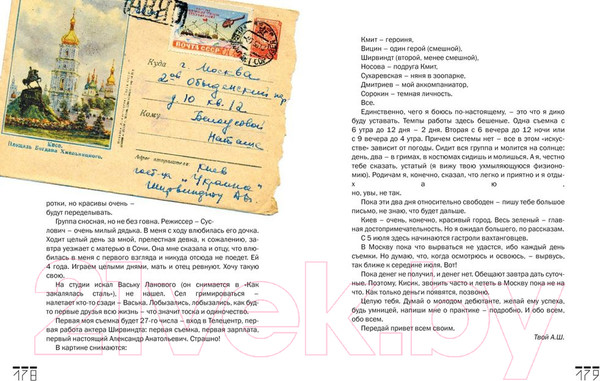 АВИА
ПОЧТА СССР
Куда г. Москва
2ой Обыденский пер
д 10 кв. 12
Кому
Наташе
Адрес отправителя: Киев
гост-ца "Украина"
Ширвиндту А.
Киев.
Площадь Богдана Хмельницкого.
ротки, но красивы очень –
будут переделывать.
Группа сносная, но не без говна. Режиссер – Сус-
лович – очень милый дядька. В меня с ходу влюбилась его дочка.
Ходит целый день за мной, прелестная девка, к сожалению, зав-
тра уезжает с матерью в Сочи. Она мне сказала и отцу, что влю-
билась в меня с первого взгляда и никуда отсюда не поедет. Ей
4 года. Играем целыми днями, мать и отец ревнуют. Хочу такую
свою.
На студии искал Ваську Ланового (он снимается в «Как
закалялась сталь»), не нашел. Сел гримироваться –
налетает кто-то сзади – Васька. Лобызались, лобызались, как буд-
то первые друзья всю жизнь – что значит тоска и одиночество.
Первая моя съемка будет 27-го числа – вход в Телецентр, пер-
вая работа актера Ширвиндта: первая съемка, первая зарплата,
первый настоящий Александр Анатольевич. Страшно!
В картине снимаются:
178
Кмит – героиня,
Вицин – один герой (смешной),
Ширвиндт (второй, менее смешной),
Носова – подруга Кмит,
Сухаревская – няня в зоопарке,
Дмитриев – мой аккомпаниатор,
Сорокин – темная личность.
Все.
Единственно, чего я боюсь по-настоящему, – это что я дико
буду уставать. Темпы работы здесь бешеные. Одна съемка с
6 утра до 12 дня – 2 дня. Вторая с 6 вечера до 12 ночи или
с 9 вечера до 4 утра. Причем системы нет – все в этом «искус-
стве» зависит от погоды. Сидит вся группа и молится на солнце:
день, два – в гримах, в костюмах сидишь и молишься. А я, честно
тебе сказать, усталый (я вижу твою ухмыляющуюся физионо-
мию). Родичам я, конечно, сказал, что легко и приятно и я отды-
хаю,
но, увы, не так.
Пока эти два дня относительно свободен – пишу тебе большое
письмо, не знаю, что будет дальше.
Киев – очень, конечно, красивый город. Весь зеленый – глав-
ная достопримечательность. Но я ожидал большего, по рассказам.
С 5 июля здесь начинаются гастроли вахтанговцев.
В Москву пока что вырваться не удастся, ибо каждый день
съемки. Но думаю, что, когда осмотрюсь и освоюсь, – вырвусь,
так ближе к середине июля. Вот!
Пока денег не получил, и денег нет. Обещают завтра дать суточ-
ные. Поэтому, Кисик, звонить часто и лететь в Москву пока не на
что. Как только деньги появятся, позвоню.
Целую тебя. Думай о молодом дебютанте, желай ему успеха,
будь умницей, напиши мне о практике – подробно. И обо всем,
обо всем.
Передай привет всем своим,
Твой А.Ш.
179
21vek.by